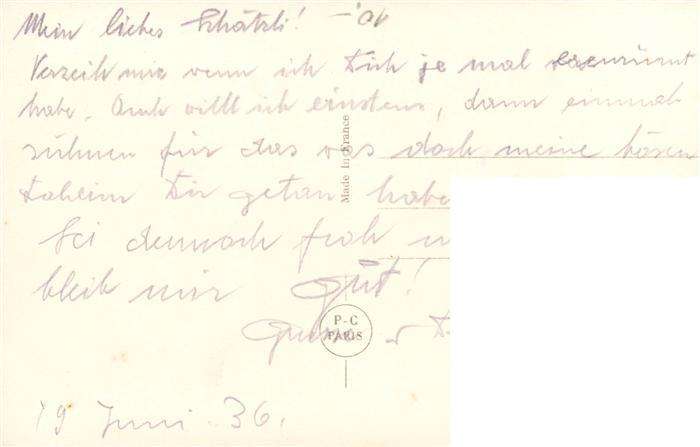 Mein liebes Schätzli!
Verzeih mir wenn ich Dich je mal erzürnt
habe. Auch will ich einstens, dann einmal
sühnen für das was doch meine bösen
daheim Dir getan habe
Sei dennoch froh
bleib mir gut!
19 Juni 36.
Made in France
P-C
PARIS